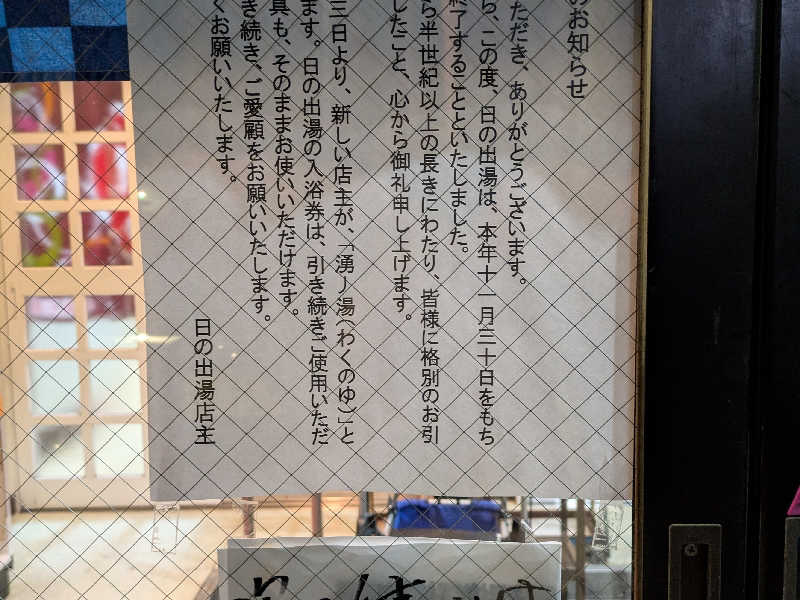 のお知らせ
ただき、ありがとうございます。
ら、この度、日の出湯は、本年十一月三十日をもち
終了することといたしました。
ら半世紀以上の長きにわたり、皆様に格別のお引
したこと、心から御礼申し上げます。
三日より、新しい店主が、「湧ノ湯(わくのゆ)」と
ます。日の出湯の入浴券は、引き続きご使用いただ
具も、そのままお使いいただけます。
き続き、ご愛顧をお願いいたします。
くお願いいたします。
日の出湯店主